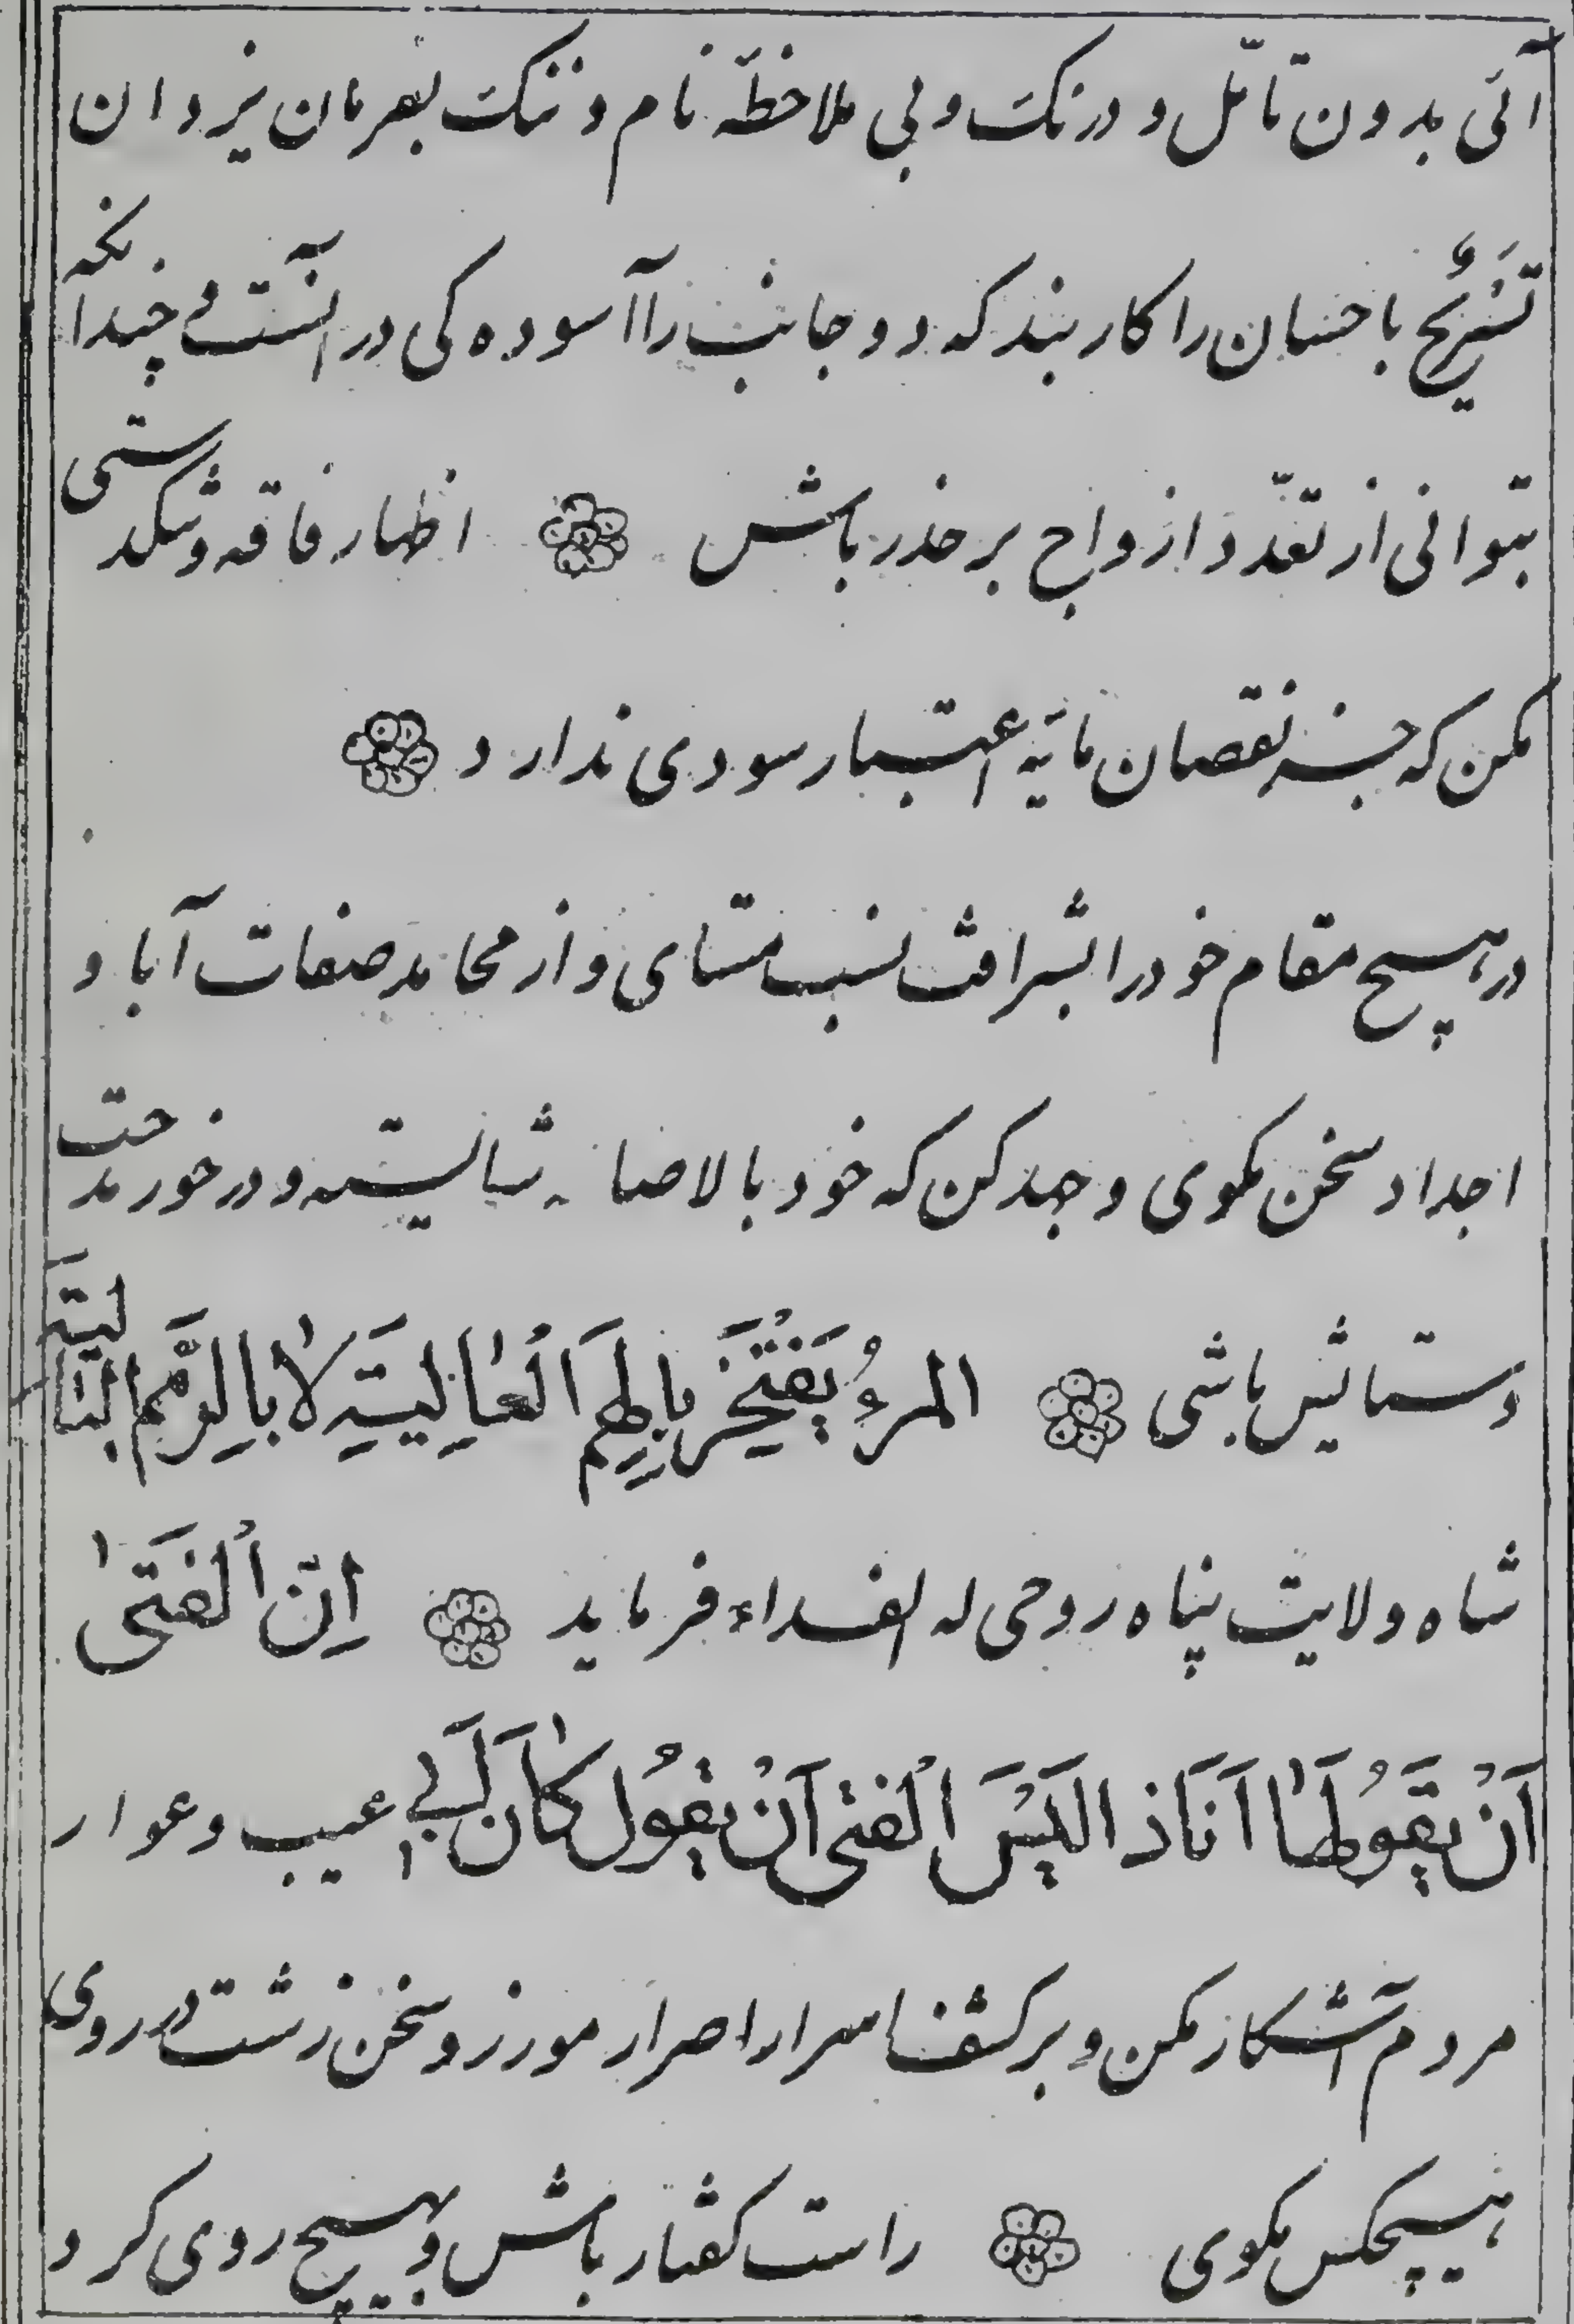 آئی بدون تأمّل و درنکت و بی ملاحظهٔ نام و ننکت بفرمان یزدان
تَسْریحُ باحسان را کار بند که دو جانب را آسوده کی در آنست چندانکه
بتوانی از تعدّد ازواج بر حذر باش اظهار فاقه و تنکدستی
مکن که جز نقصان مایهٔ اعتبار سودی ندارد
در هیچ مقام خود را بشرافت نسب مستای و از محامد صفات آباء و
اجداد سخن مکوی و جهد کن که خود بالاصاله شایسته و در خور مدحت
و ستایش باشی المرءُ یَفْتَخِرُ بِالْهِمَمِ الْعالِیَةِ لا بِالرِّمَمِ الْبالِیَةِ
شاه ولایت پناه روحی له الفداء فرماید اِنّ اَلْفَتی
اَنْ یَقُولُ هٰا اَنَا ذا لَیْسَ الْفَتی اَنْ یَقُولَ کٰانَ اَبی عیب و عوار
مردم آشکار مکن و بر کشف اسرار اصرار مورز و سخن زشت در روی
هیچکس مکوی راست کفتار باش و بهیچ روی کرد